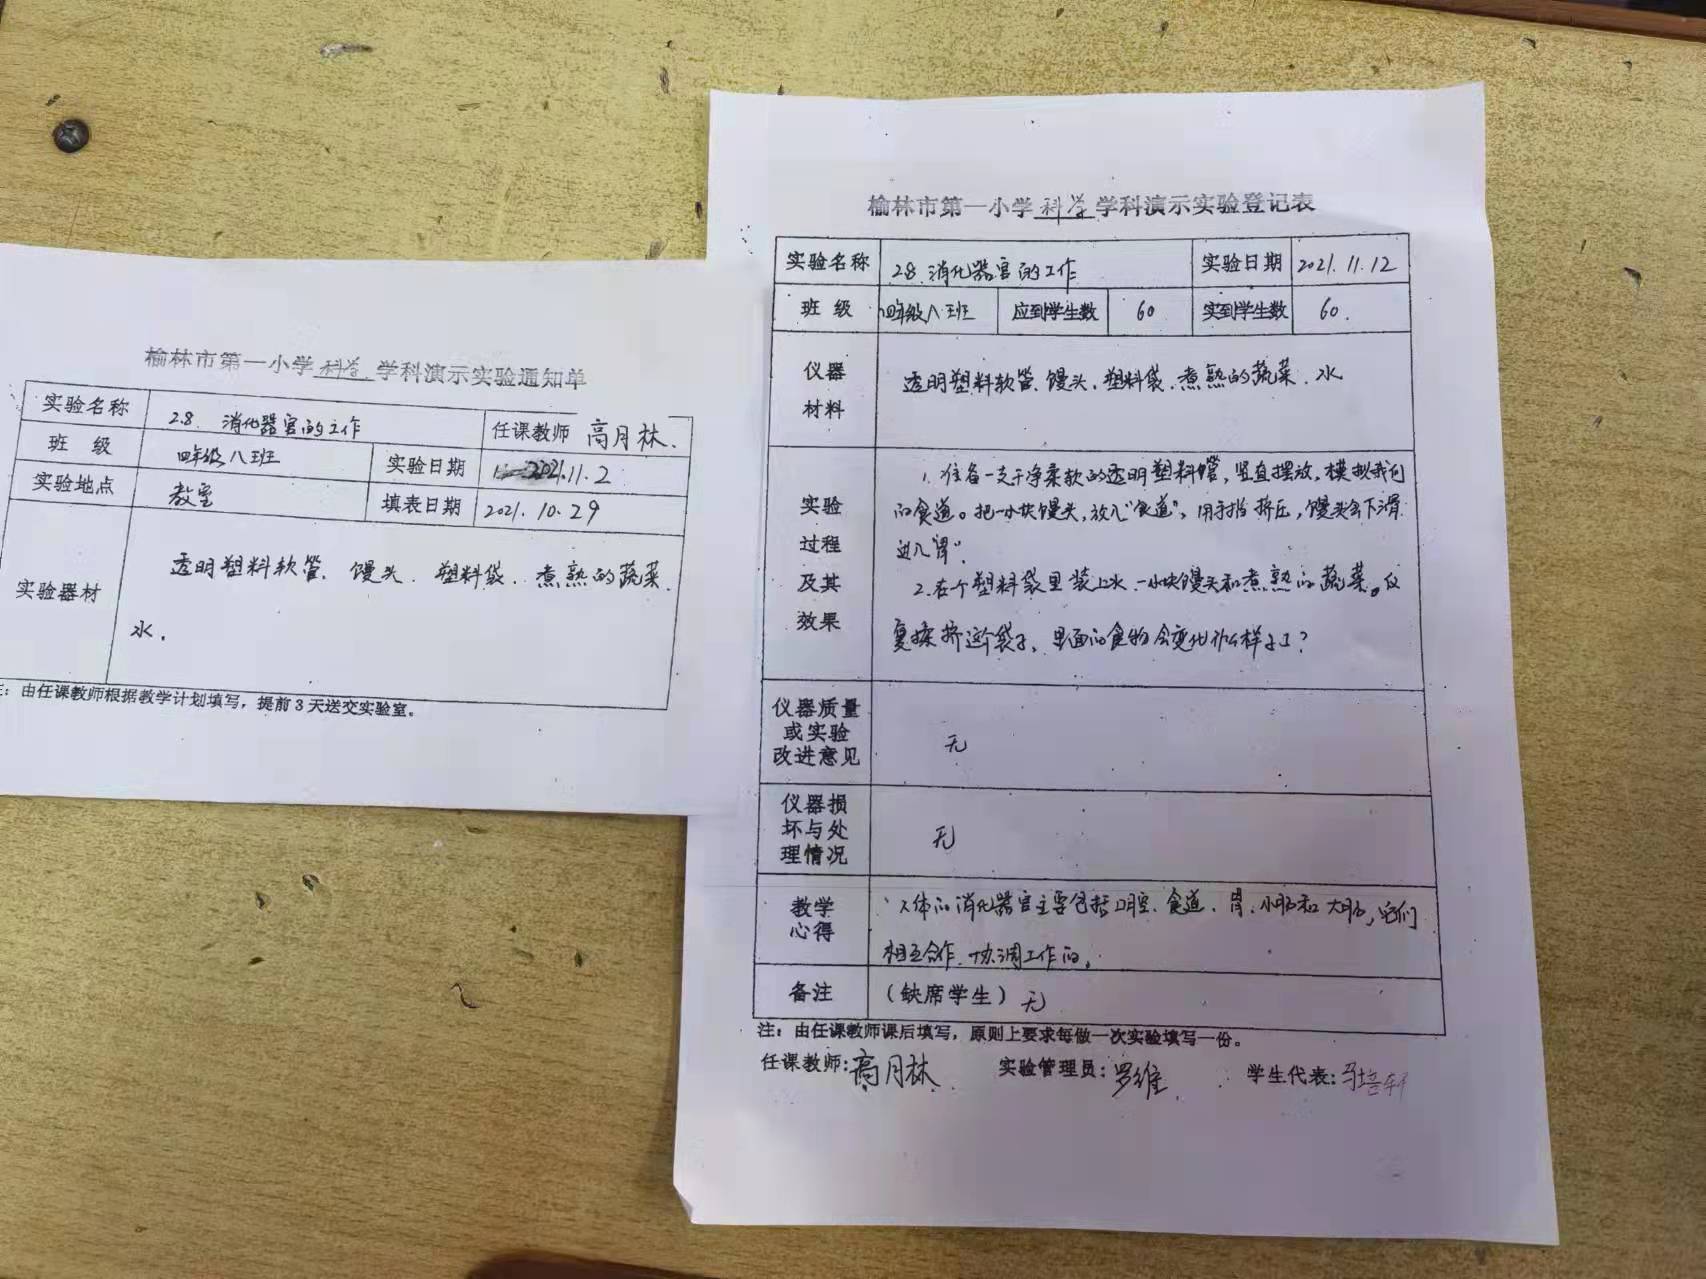 榆林市第一小学科学学科演示实验通知单
实验名称 2.8. 消化器官的工作 任课教师 高月林.
班 级 四年级八班 实验日期 2021.11.2
实验地点 教室 填表日期 2021.10.29
实验器材 透明塑料软管. 馒头. 塑料袋. 煮熟的蔬菜.
水.
注：由任课教师根据教学计划填写，提前3天送交实验室。
榆林市第一小学科学学科演示实验登记表
实验名称 2.8 消化器官的工作 实验日期 2021.11.12
班 级 四年级八班 应到学生数 60 实到学生数 60.
仪器
材料
透明塑料软管. 馒头. 塑料袋. 煮熟的蔬菜. 水
实验
过程
及其
效果
1. 准备一支干净柔软的透明塑料管，竖直摆放，模拟我们
的食道。把一小块馒头，放入“食道”，用手指挤压，馒头会下滑
进入“胃”.
2. 在个塑料袋里装上水. 一小块馒头和煮熟的蔬菜。反
复揉挤这个袋子，里面的食物会变化什么样子了？
仪器质量
或实验
改进意见
无
仪器损
坏与处
理情况
无
教学
心得
人体的消化器官主要包括口腔、食道、胃、小肠和大肠，它们
相互合作、协调工作的。
备注 （缺席学生）无
注：由任课教师课后填写，原则上要求每做一次实验填写一份。
任课教师：高月林 实验管理员：罗维 学生代表：马培轩